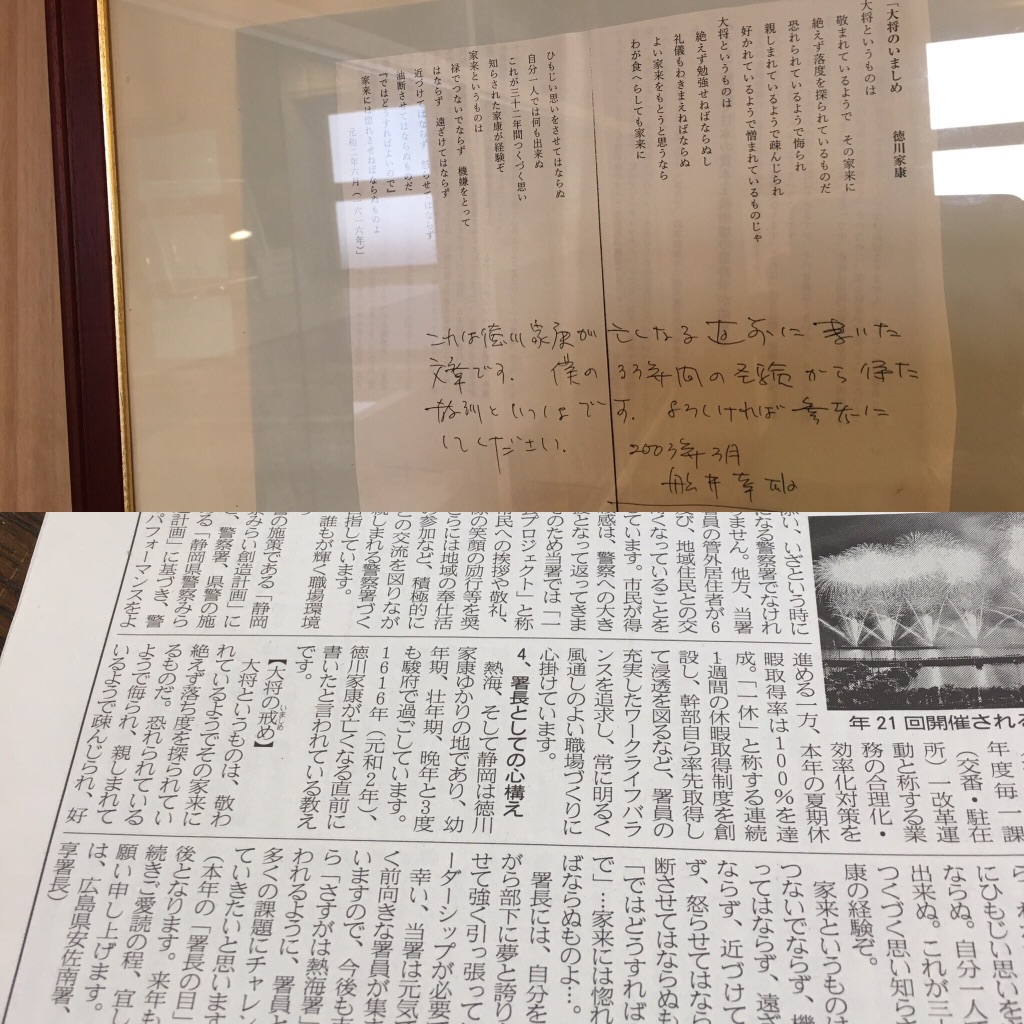 「大将のいましめ　　徳川家康
大将というものは
敬まれているようで　その家来に
絶えず落度を探られているものだ
恐れられているようで侮られ
親しまれているようで疎んじられ
好かれているようで憎まれているものじゃ
大将というものは
絶えず勉強せねばならぬし
礼儀もわきまえねばならぬ
よい家来をもとうと思うなら
わが食へらしても家来に
ひもじい思いをさせてはならぬ
自分一人では何も出来ぬ
これが三十二年間つくづく思い
知らされた家康が経験ぞ
家来というものは
禄でつないでならず　機嫌をとって
はならず　遠ざけてはならず
近づけてはならず　怒らせてはならず
油断させてはならぬものだ
「ではどうすればよいので」
家来には惚れさせねばならぬものよ
元和二年六月（一六一六年）」
これは徳川家康が亡くなる直前に書いた
文章です。僕の33年間の経験から得た
教訓といっしょです。よろしければ参考に
してください。
2003年3月
船井幸雄
添い、いざという時に
になる警察署でなけれ
りません。他方、当署
員の管外居住者が6
及び、地域住民との交
くなっていることを
ています。市民が得
感は、警察への大き
となって返ってきま
のため当署では「一
ムプロジェクト」と称
民への挨拶や敬礼、
様の笑顔の励行等を奨
らには地域の奉仕活
参加など、積極的に
この交流を図りなが
親しまれる警察署づく
目指しています。
誰もが輝く職場環境
の施策である「静岡
みらい創造計画」に
、警察署、県警の施
る「静岡県警察みら
計画」に基づき、警
パフォーマンスをよ
年21回開催される
進める一方、本年の夏期休
暇取得率は100％を達
成。「一休」と称する連続
1週間の休暇取得制度を創
設し、幹部自ら率先取得し
て浸透を図るなど、署員の
充実したワークライフバラ
ンスを追求し、常に明るく
風通しのよい職場づくりに
心掛けています。
4、署長としての心構え
熱海、そして静岡は徳川
家康ゆかりの地であり、幼
年期、壮年期、晩年と3度
も駿府で過ごしています。
1616年（元和2年）、
徳川家康が亡くなる直前に
書いたと言われている教え
です。
【大将の戒め】いましめ
大将というものは、敬わ
れているようでその家来に
絶えず落ち度を探られてい
るものだ。恐れられている
ようで侮られ、親しまれて
いるようで疎んじられ、好
年度毎一課
（交番・駐在
所）一改革運
動と称する業
務の合理化・
効率化対策を
にひもじい思いを
ならぬ。自分一人で
出来ぬ。これが三十
つくづく思い知ら
康の経験ぞ。
家来というものは
つないでならず、機
ってはならず、遠ざ
ならず、近づけて
ず、怒らせてはなら
断させてはならぬも
「ではどうすれば
で」…家来には惚れ
ばならぬものよ…。
署長には、自分を
がら部下に夢と誇り
せて強く引っ張って
ーダーシップが必要で
幸い、当署は元気で
く前向きな署員が集ま
いますので、今後も市
ら「さすがは熱海署」
われるように、署員と
多くの課題にチャレン
ていきたいと思います
（本年の「署長の目」
後となります。来年も
続きご愛読の程、宜し
願い申し上げます。
は、広島県安佐南署、
享署長）